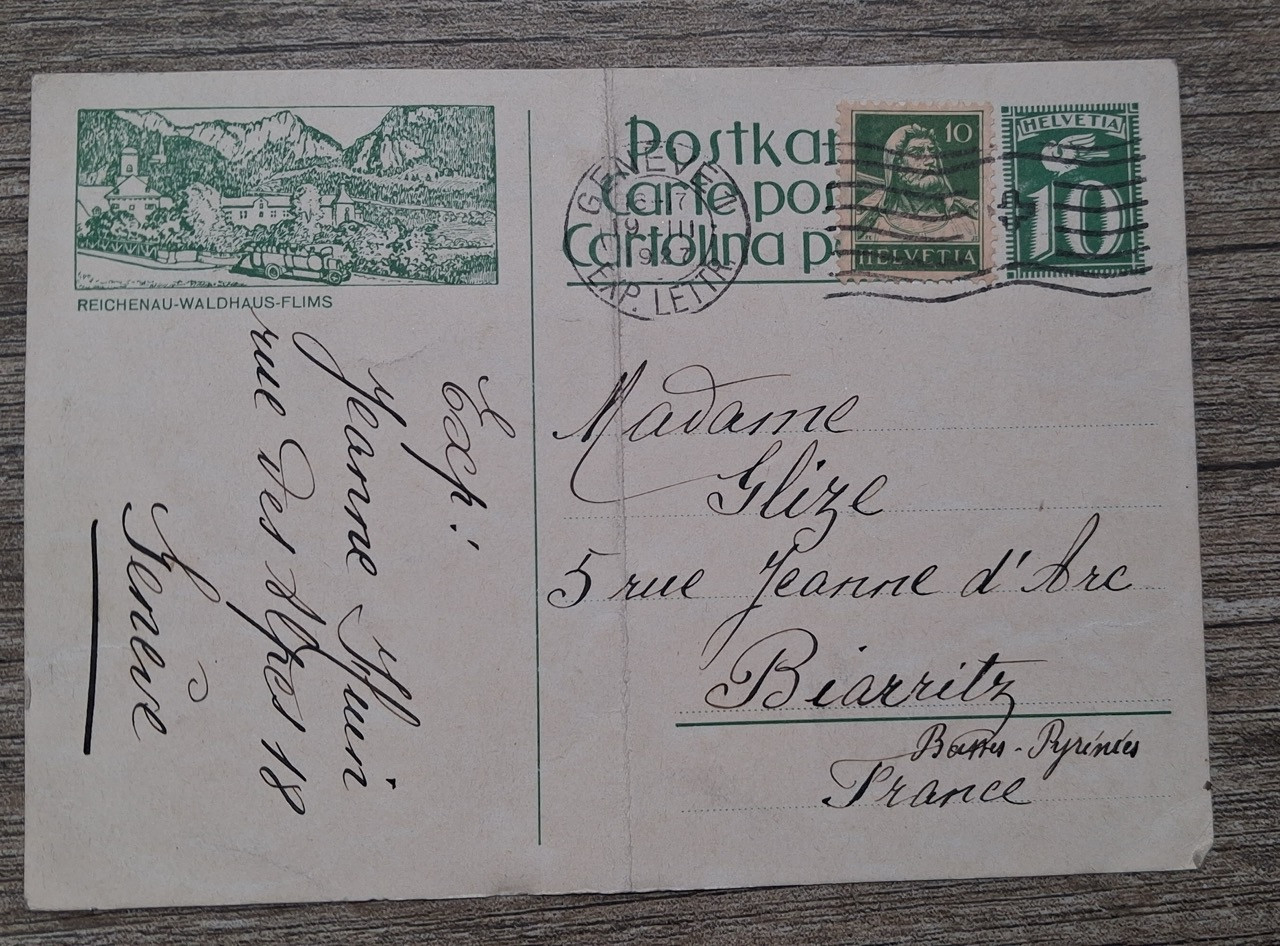 REICHENAU-WALDHAUS-FLIMS
Exp:
Jeanne
rue des Alpes 18
Genève
Postkar
Carte pos
Cartolina p
GENEVE 1
EXP. LETTR
10
HELVETIA
HELVETIA
10
Madame
Glize
5 rue Jeanne d'Arc
Biarritz
Basses-Pyrénées
France